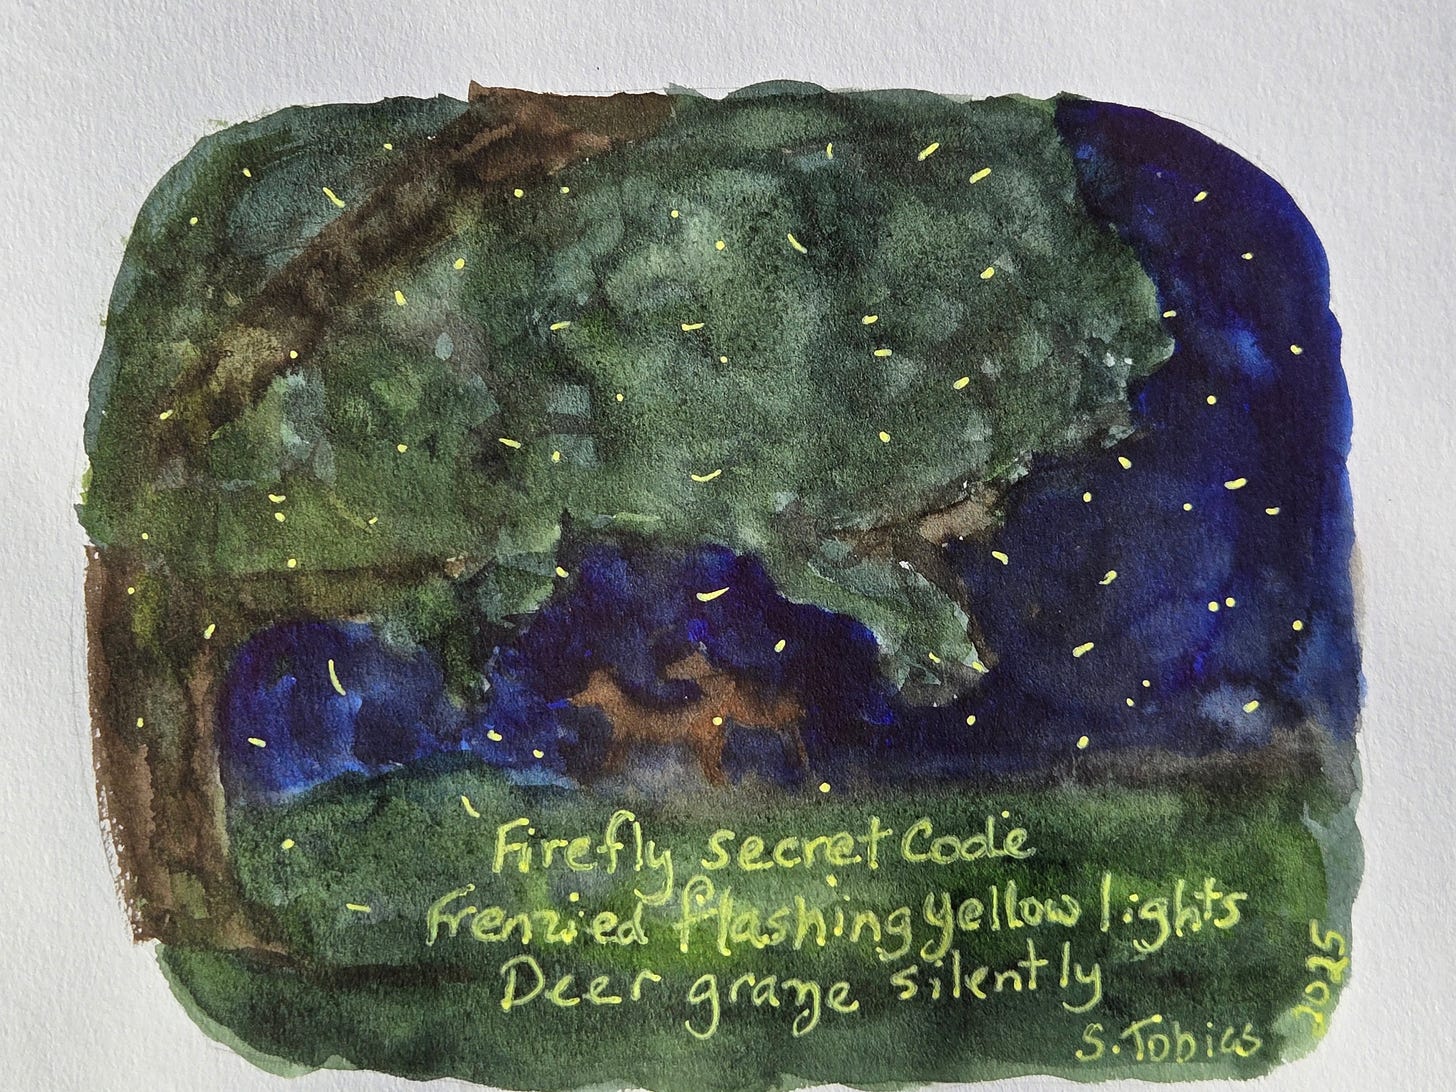 Firefly secret Code
Frenzied flashing yellow lights
Deer graze silently
S. Tobias
2025